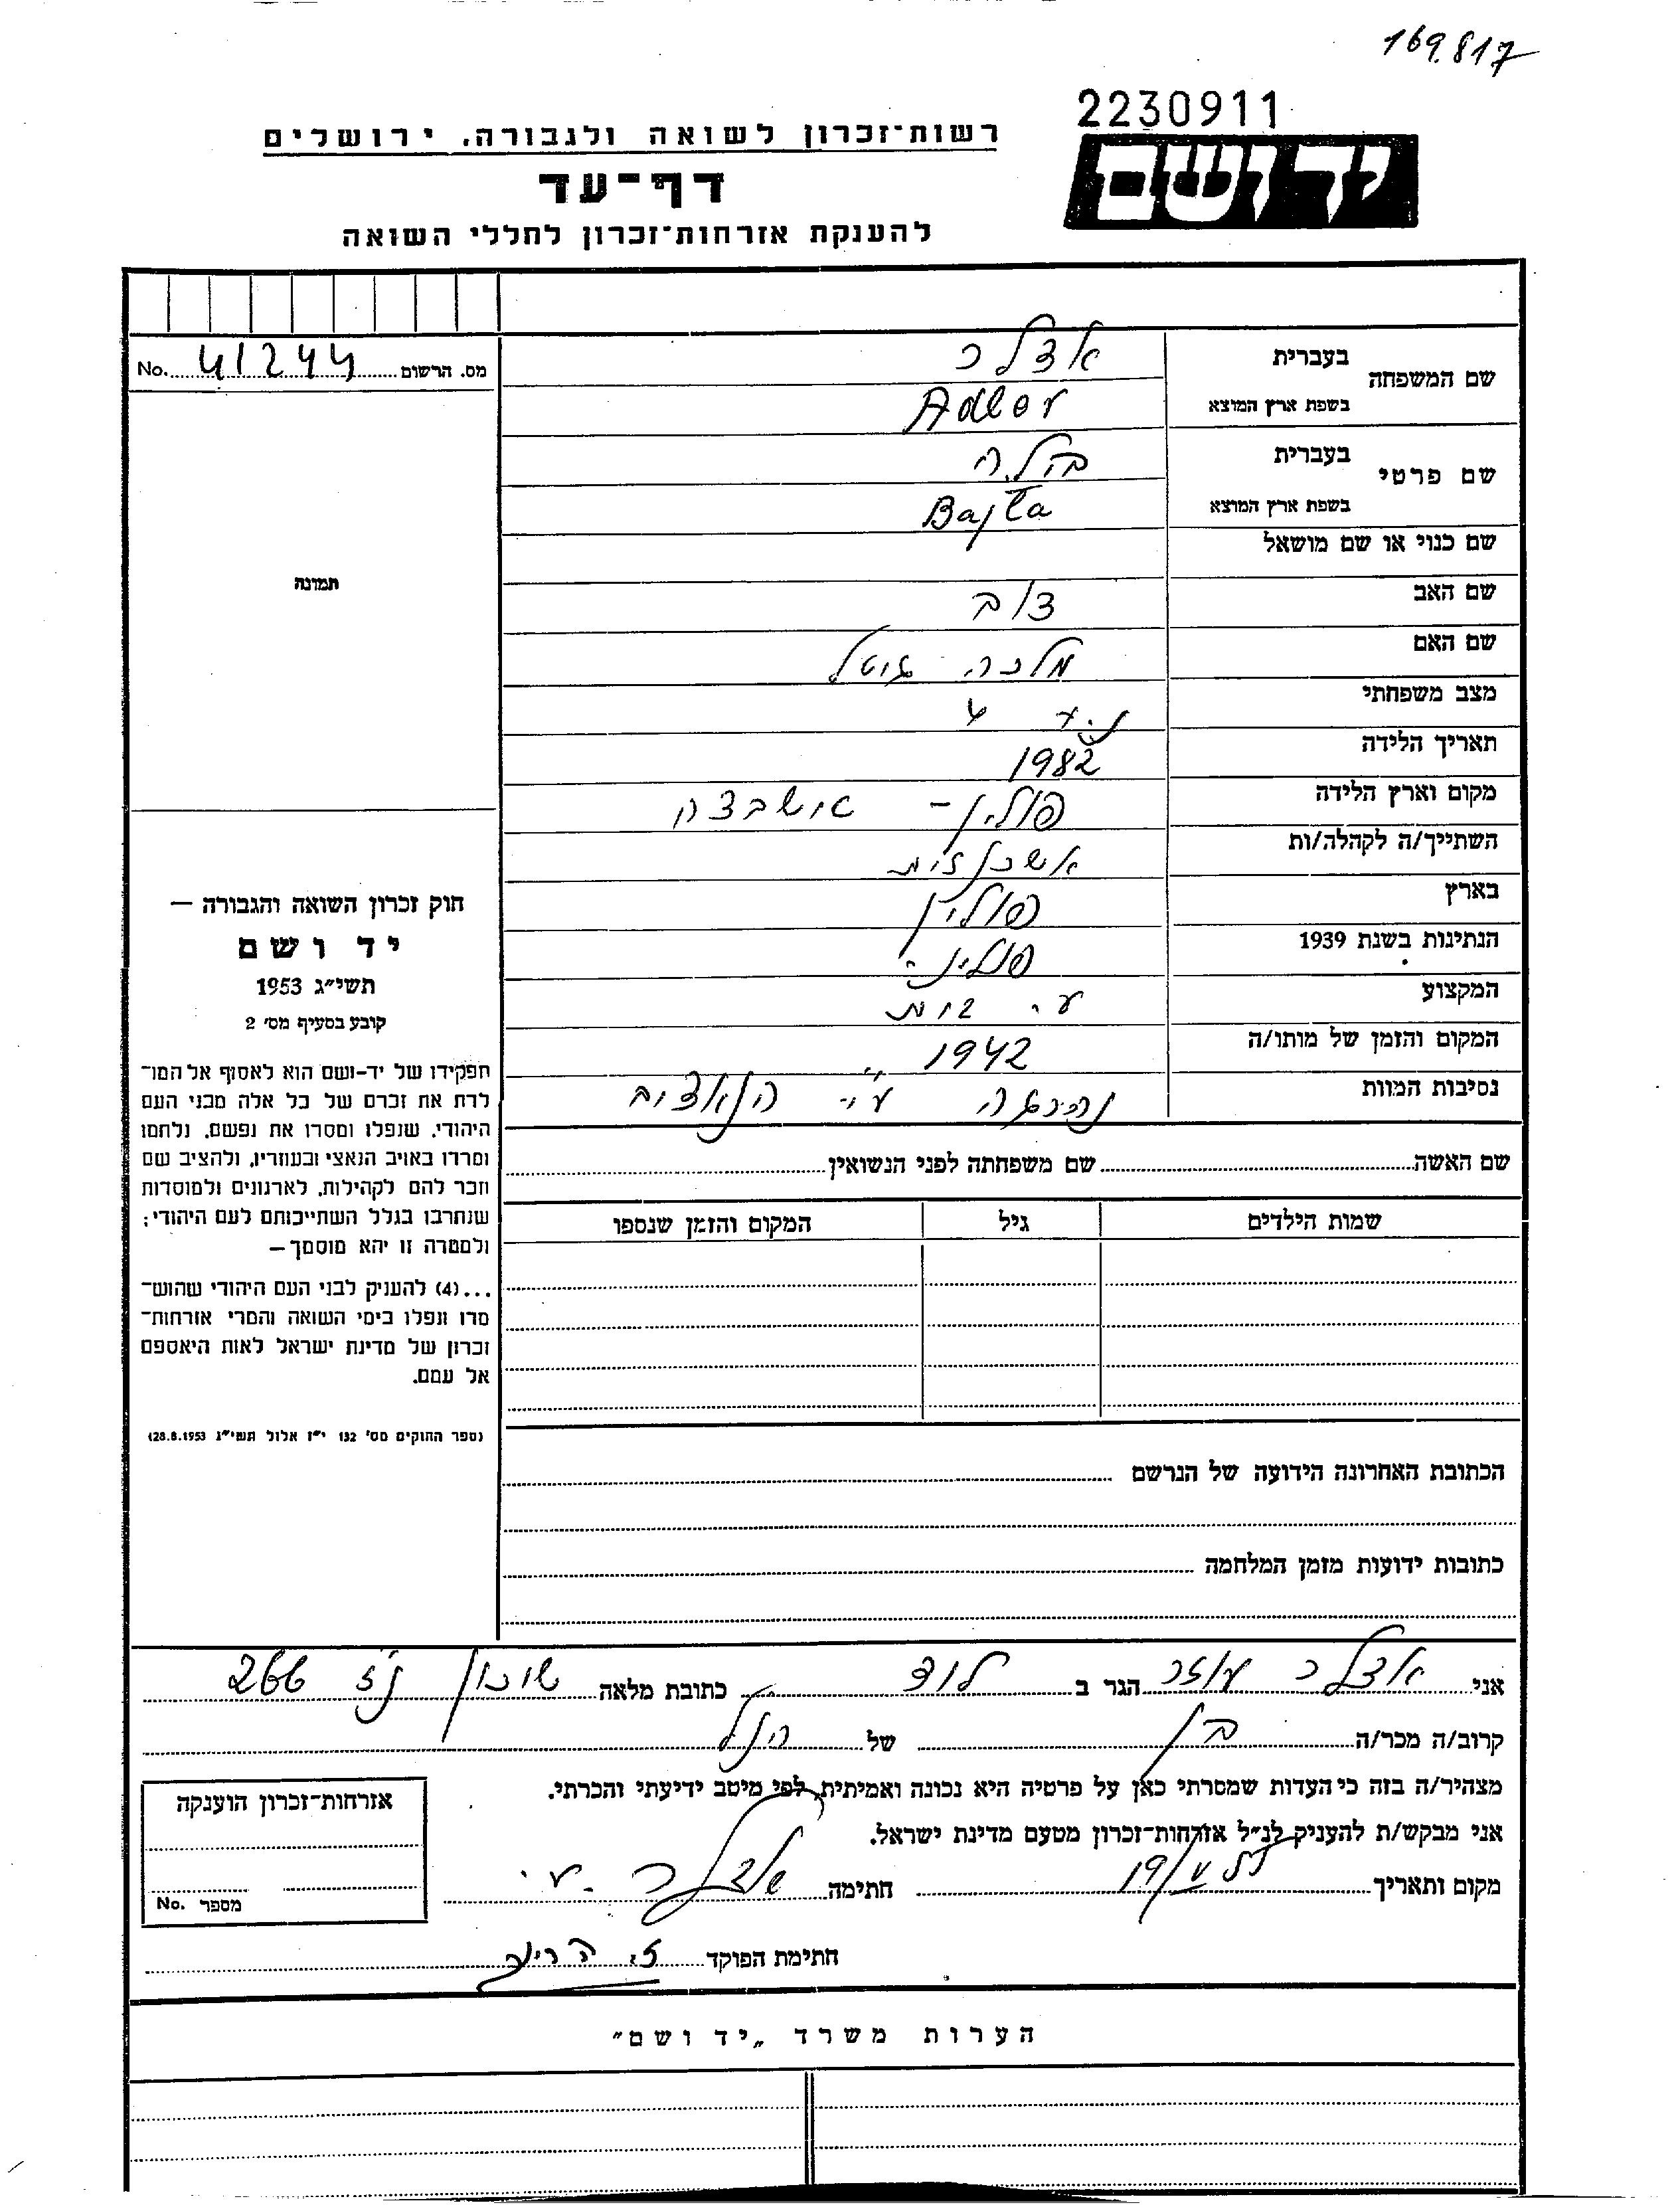 169.817
2230911
יד ושם
רשות־זכרון לשואה ולגבורה, ירושלים
דף־עד
להענקת אזרחות־זכרון לחללי השואה
מס. הרשום 41244 No.
שם המשפחה
בעברית אדלר
בשפת ארץ המוצא Adler
שם פרטי
בעברית
בשפת ארץ המוצא Bajla
שם כנוי או שם מושאל
שם האב דוב
שם האם מלכה
מצב משפחתי
תאריך הלידה 1982
מקום וארץ הלידה פולין -
השתייך/ה לקהלה/ות אשכנזית
בארץ פולין
הנתינות בשנת 1939 פולין -
המקצוע ע. בית
המקום והזמן של מותו/ה 1942
נסיבות המוות נהרגה ע"י הנאצים
תמונה
חוק זכרון השואה והגבורה —
יד ושם
תשי״ג 1953
קובע בסעיף מס׳ 2
תפקידו של יד-ושם הוא לאסוף אל המו־
לדת את זכרם של כל אלה מבני העם
היהודי, שנפלו ומסרו את נפשם, נלחמו
ומרדו באויב הנאצי ובעוזריו, ולהציב שם
וזכר להם לקהילות, לארגונים ולמוסדות
שנחרבו בגלל השתייכותם לעם היהודי;
ולמטרה זו יהא מוסמך—
...(4) להעניק לבני העם היהודי שהוש־
מדו ונפלו בימי השואה והמרי אזרחות־
זכרון של מדינת ישראל לאות היאספם
אל עמם.
(ספר החוקים מס׳ 132 י״ז אלול תשי״ג 28.8.1953)
שם האשה שם משפחתה לפני הנשואין
שמות הילדים גיל המקום והזמן שנספו
הכתובת האחרונה הידועה של הנרשם
כתובות ידועות מזמן המלחמה
אני אדלר עוזר הגר ב לוד כתובת מלאה שיכון 266
קרוב/ה מכר/ה בן של הנ"ל
מצהיר/ה בזה כי העדות שמסרתי כאן על פרטיה היא נכונה ואמיתית, לפי מיטב ידיעתי והכרתי.
אני מבקש/ת להעניק לנ״ל אזרחות־זכרון מטעם מדינת ישראל.
מקום ותאריך חתימה אדלר ע.
חתימת הפוקד
אזרחות־זכרון הוענקה
מספר No.
הערות משרד „יד ושם״